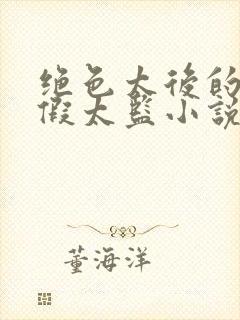 绝色太後的
假太監小說
董海洋